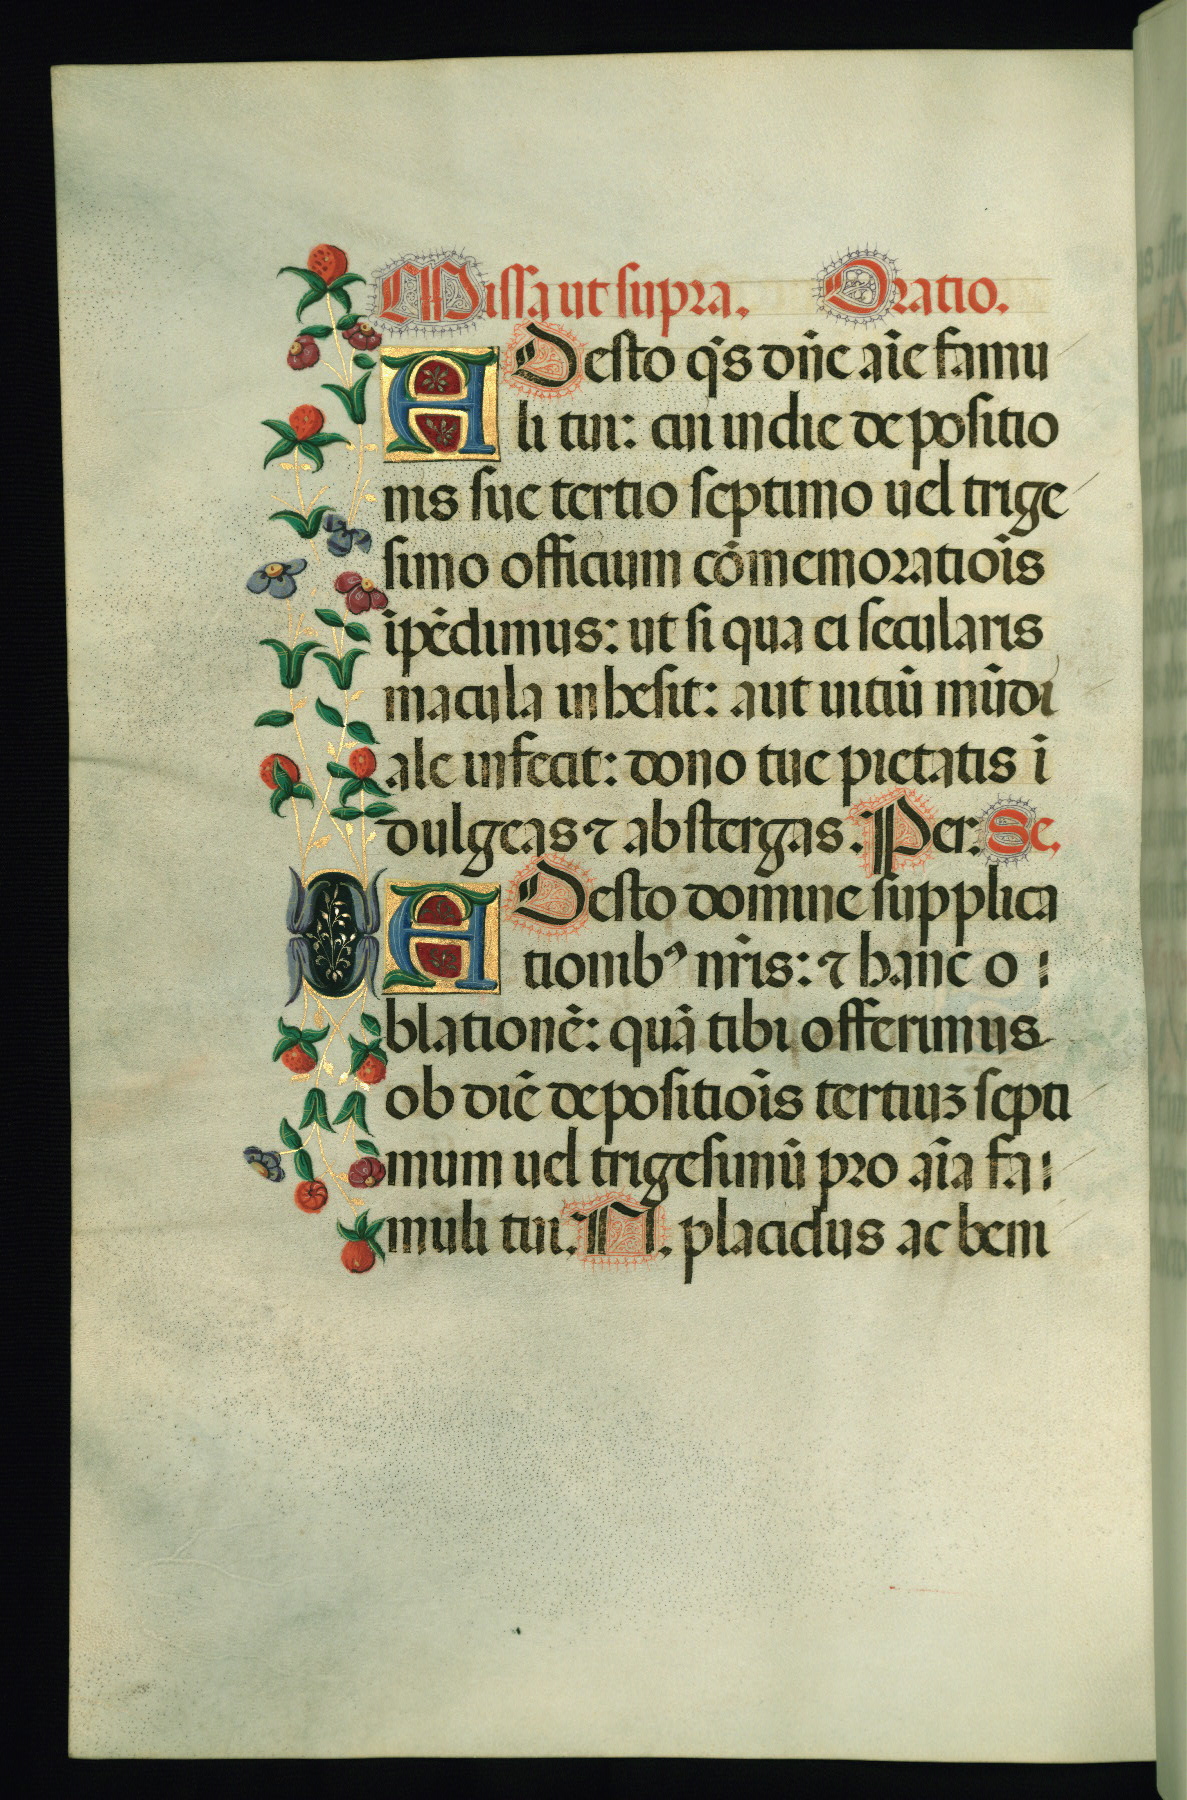 Missa ut supra. Oratio.
ADesto q̄s dn̄e aīe famu
li tui: cui in die depositio
nis sue tertio septimo uel trige
simo officium cōmemoratiōis
īpēdimus: ut si qua ei secularis
macula inhesit: aut uitiū mūdi
ale infecit: dono tue pietatis ī
dulgeas ⁊ abstergas. Per. Se.
ADesto domine supplica
tionibꝰ nr̄is: ⁊ hanc o
blationē: quā tibi offerimus
ob diē depositiōis tertiuꝫ septi
mum uel trigesimū pro aīa fa
muli tui. N. placidus ac beni